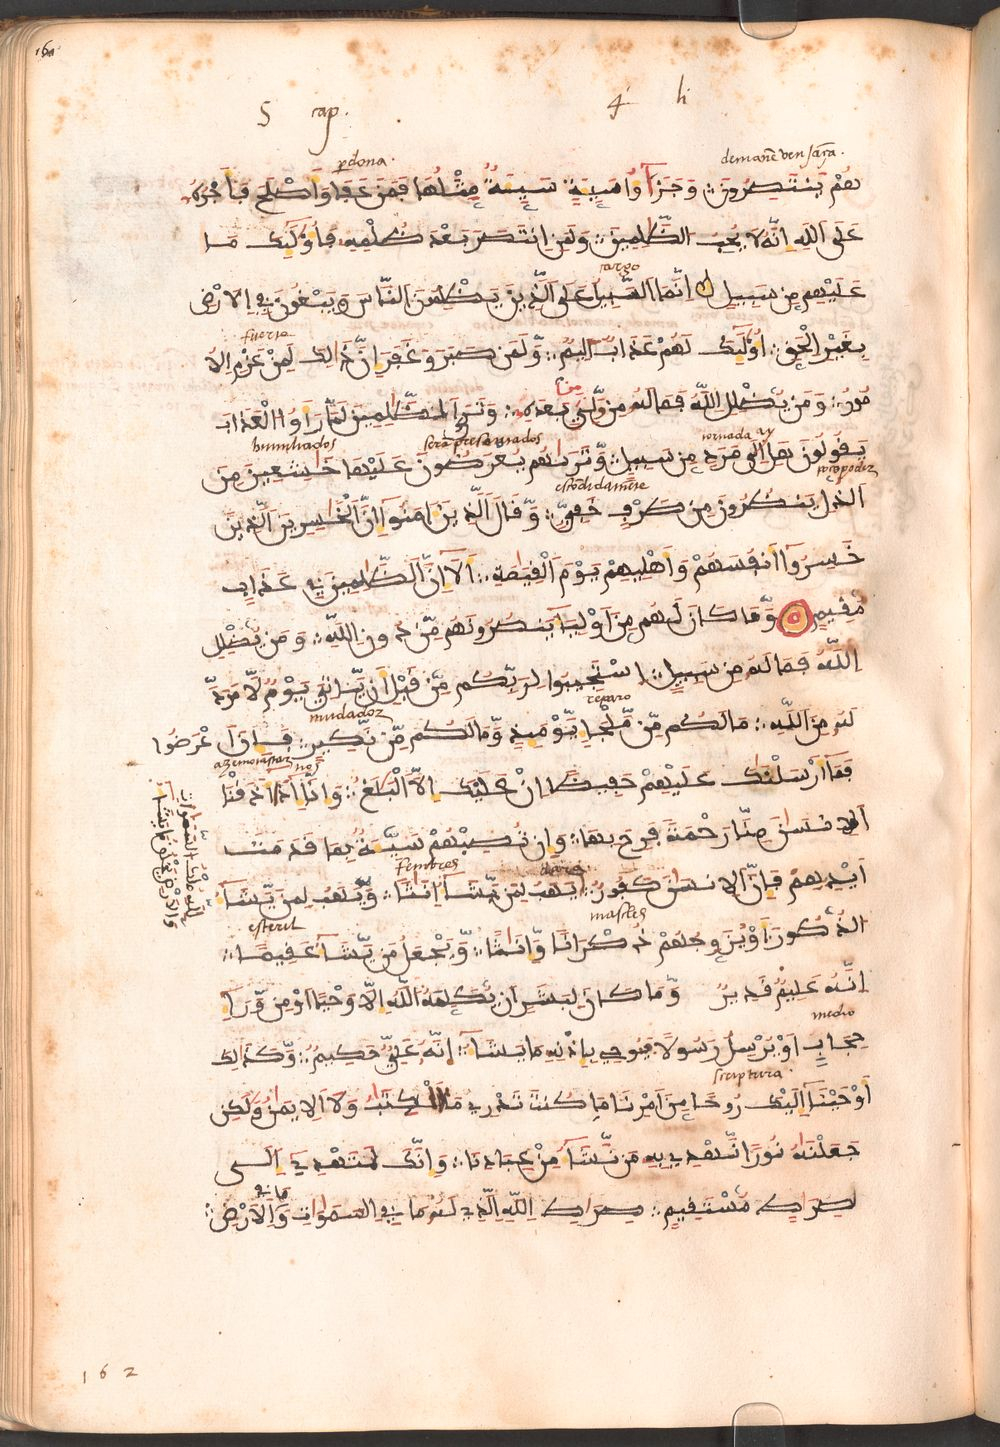 16
5 cap. 4 li
perdona.
هُمْ يَنتَصِرُونَ وَجَزَٰٓؤُا سَيِّئَةٍ سَيِّئَةٌ مِّثْلُهَا فَمَنْ عَفَا وَأَصْلَحَ فَأَجْرُهُ
عَلَى اَللَّهِ إِنَّهُ لَا يُحِبُّ الظَّٰلِمِينَ وَلَمَنِ اِنتَصَرَ بَعْدَ ظُلْمِهِ فَأُوْلَٰٓئِكَ مَا
cargo
عَلَيْهِم مِّن سَبِيلٍ إِنَّمَا اَلسَّبِيلُ عَلَى اَلَّذِينَ يَظْلِمُونَ اَلنَّاسَ وَيَبْغُونَ فِي اِلَارْضِ
fuerza
بِغَيْرِ الْحَقِّ أُوْلَٰٓئِكَ لَهُمْ عَذَابٌ أَلِيمٌ وَلَمَن صَبَرَ وَغَفَرَ إِنَّ ذَٰلِكَ لَمِنْ عَزْمِ اِلُا
مُورِ وَمَن يُضْلِلِ اِللَّهُ فَمَا لَهُ مِن وَّلِيٍّ مِّن بَعْدِهِ وَتَرَى اَلظَّٰلِمِينَ لَمَّا رَأَوُا اْلْعَذَابَ
humiliados sera presentados tornada ay
يَقُولُونَ هَلِ اِلَىٰ مَرَدٍّ مِّن سَبِيلٍ وَتَرَىٰهُمْ يُعْرَضُونَ عَلَيْهَا خَٰشِعِينَ مِنَ
poco poder
اَلذُّلِّ يَنظُرُونَ مِن طَرْفٍ خَفِيٍّ وَقَالَ اَلَّذِينَ ءَامَنُوا إِنَّ اَلْخَٰسِرِينَ اَلَّذِينَ
خَسِرُوا أَنفُسَهُمْ وَأَهْلِيهِمْ يَوْمَ اَلْقِيَٰمَةِ أَلَا إِنَّ اَلظَّٰلِمِينَ فِي عَذَابٍ
مُّقِيمٍ وَمَا كَانَ لَهُم مِّنَ اَوْلِيَآءَ يَنصُرُونَهُم مِّن دُونِ اِللَّهِ وَمَن يُضْلِلِ
اِللَّهُ فَمَا لَهُ مِن سَبِيلٍ اِسْتَجِيبُوا لِرَبِّكُم مِّن قَبْلِ أَن يَّاتِيَ يَوْمٌ لَّا مَرَدَّ
mudados reparo
لَهُ مِنَ اَللَّهِ مَا لَكُم مِّن مَّلْجَإٍ يَوْمَئِذٍ وَمَا لَكُم مِّن نَّكِيرٍ فَإِنَ اَعْرَضُوا
فَمَا أَرْسَلْنَٰكَ عَلَيْهِمْ حَفِيظًا إِنْ عَلَيْكَ إِلَّا اَلْبَلَٰغُ وَإِنَّا إِذَا أَذَقْنَا
اَلِانسَٰنَ مِنَّا رَحْمَةً فَرِحَ بِهَا وَإِن تُصِبْهُمْ سَيِّئَةٌ بِمَا قَدَّمَتَ
fembres
اَيْدِيهِمْ فَإِنَّ اَلِانسَٰنَ كَفُورٌ يَهَبُ لِمَن يَّشَآءُ اِنَٰثًا وَيَهَبُ لِمَن يَّشَآءُ
لِلَّهِ مُلْكُ اُلسَّمَٰوَٰتِ
وَالَارْضِ يَخْلُقُ مَا يَشَآءُ
esteril masclés
اُلذُّكُورَ أَوْ يُزَوِّجُهُمْ ذُكْرَانًا وَإِنَٰثًا وَيَجْعَلُ مَن يَّشَآءُ عَقِيمًا
إِنَّهُ عَلِيمٌ قَدِيرٌ وَمَا كَانَ لِبَشَرٍ أَن يُكَلِّمَهُ اُللَّهُ إِلَّا وَحْيًا أَوْ مِن وَّرَآءِ
medio
حِجَابٍ أَوْ يُرْسِلُ رَسُولًا فَيُوحِي بِإِذْنِهِ مَا يَشَآءُ إِنَّهُ عَلِيٌّ حَكِيمٌ وَكَذَٰلِكَ
scriptura
أَوْحَيْنَا إِلَيْكَ رُوحًا مِّنَ اَمْرِنَا مَا كُنتَ تَدْرِي مَا اَلْكِتَٰبُ وَلَا اَلِايمَٰنُ وَلَٰكِن
جَعَلْنَٰهُ نُورًا نَّهْدِي بِهِ مَن نَّشَآءُ مِنْ عِبَادِنَا وَإِنَّكَ لَتَهْدِي إِلَىٰ
صِرَٰطٍ مُّسْتَقِيمٍ صِرَٰطِ اِللَّهِ اِلَّذِي لَهُ مَا فِي اِلسَّمَٰوَٰتِ وَمَا فِي اِلَارْضِ
162